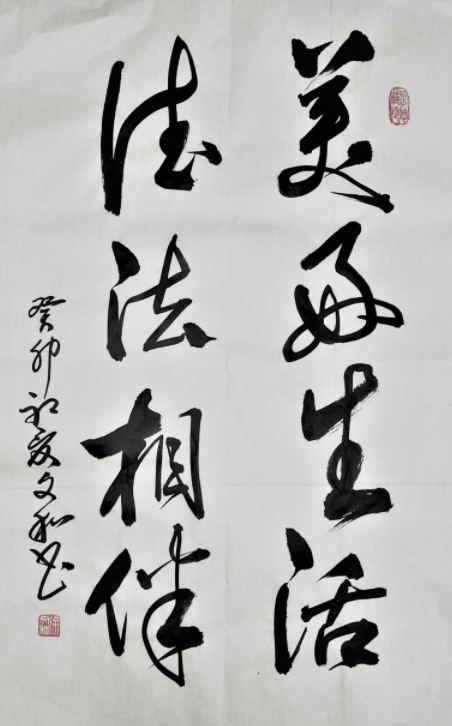 美好生活
德法相伴
癸卯初夏文和书